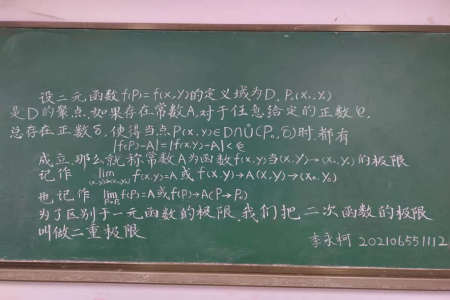 设二元函数f(P)=f(x,y)的定义域为D, P₀(x₀,y₀)
是D的聚点.如果存在常数A,对于任意给定的正数ε,
总存在正数δ,使得当点P(x,y)∈D∩Ů(P₀,δ)时,都有
|f(P)-A|=|f(x,y)-A|<ε
成立,那么就称常数A为函数f(x,y)当(x,y)→(x₀,y₀)的极限
记作 lim(x,y)→(x₀,y₀) f(x,y)=A 或 f(x,y)→A(x,y)→(x₀,y₀)
也记作 lim P→P₀ f(P)=A或f(P)→A(P→P₀)
为了区别于一元函数的极限,我们把二次函数的极限
叫做二重极限
李永柯 202106551112